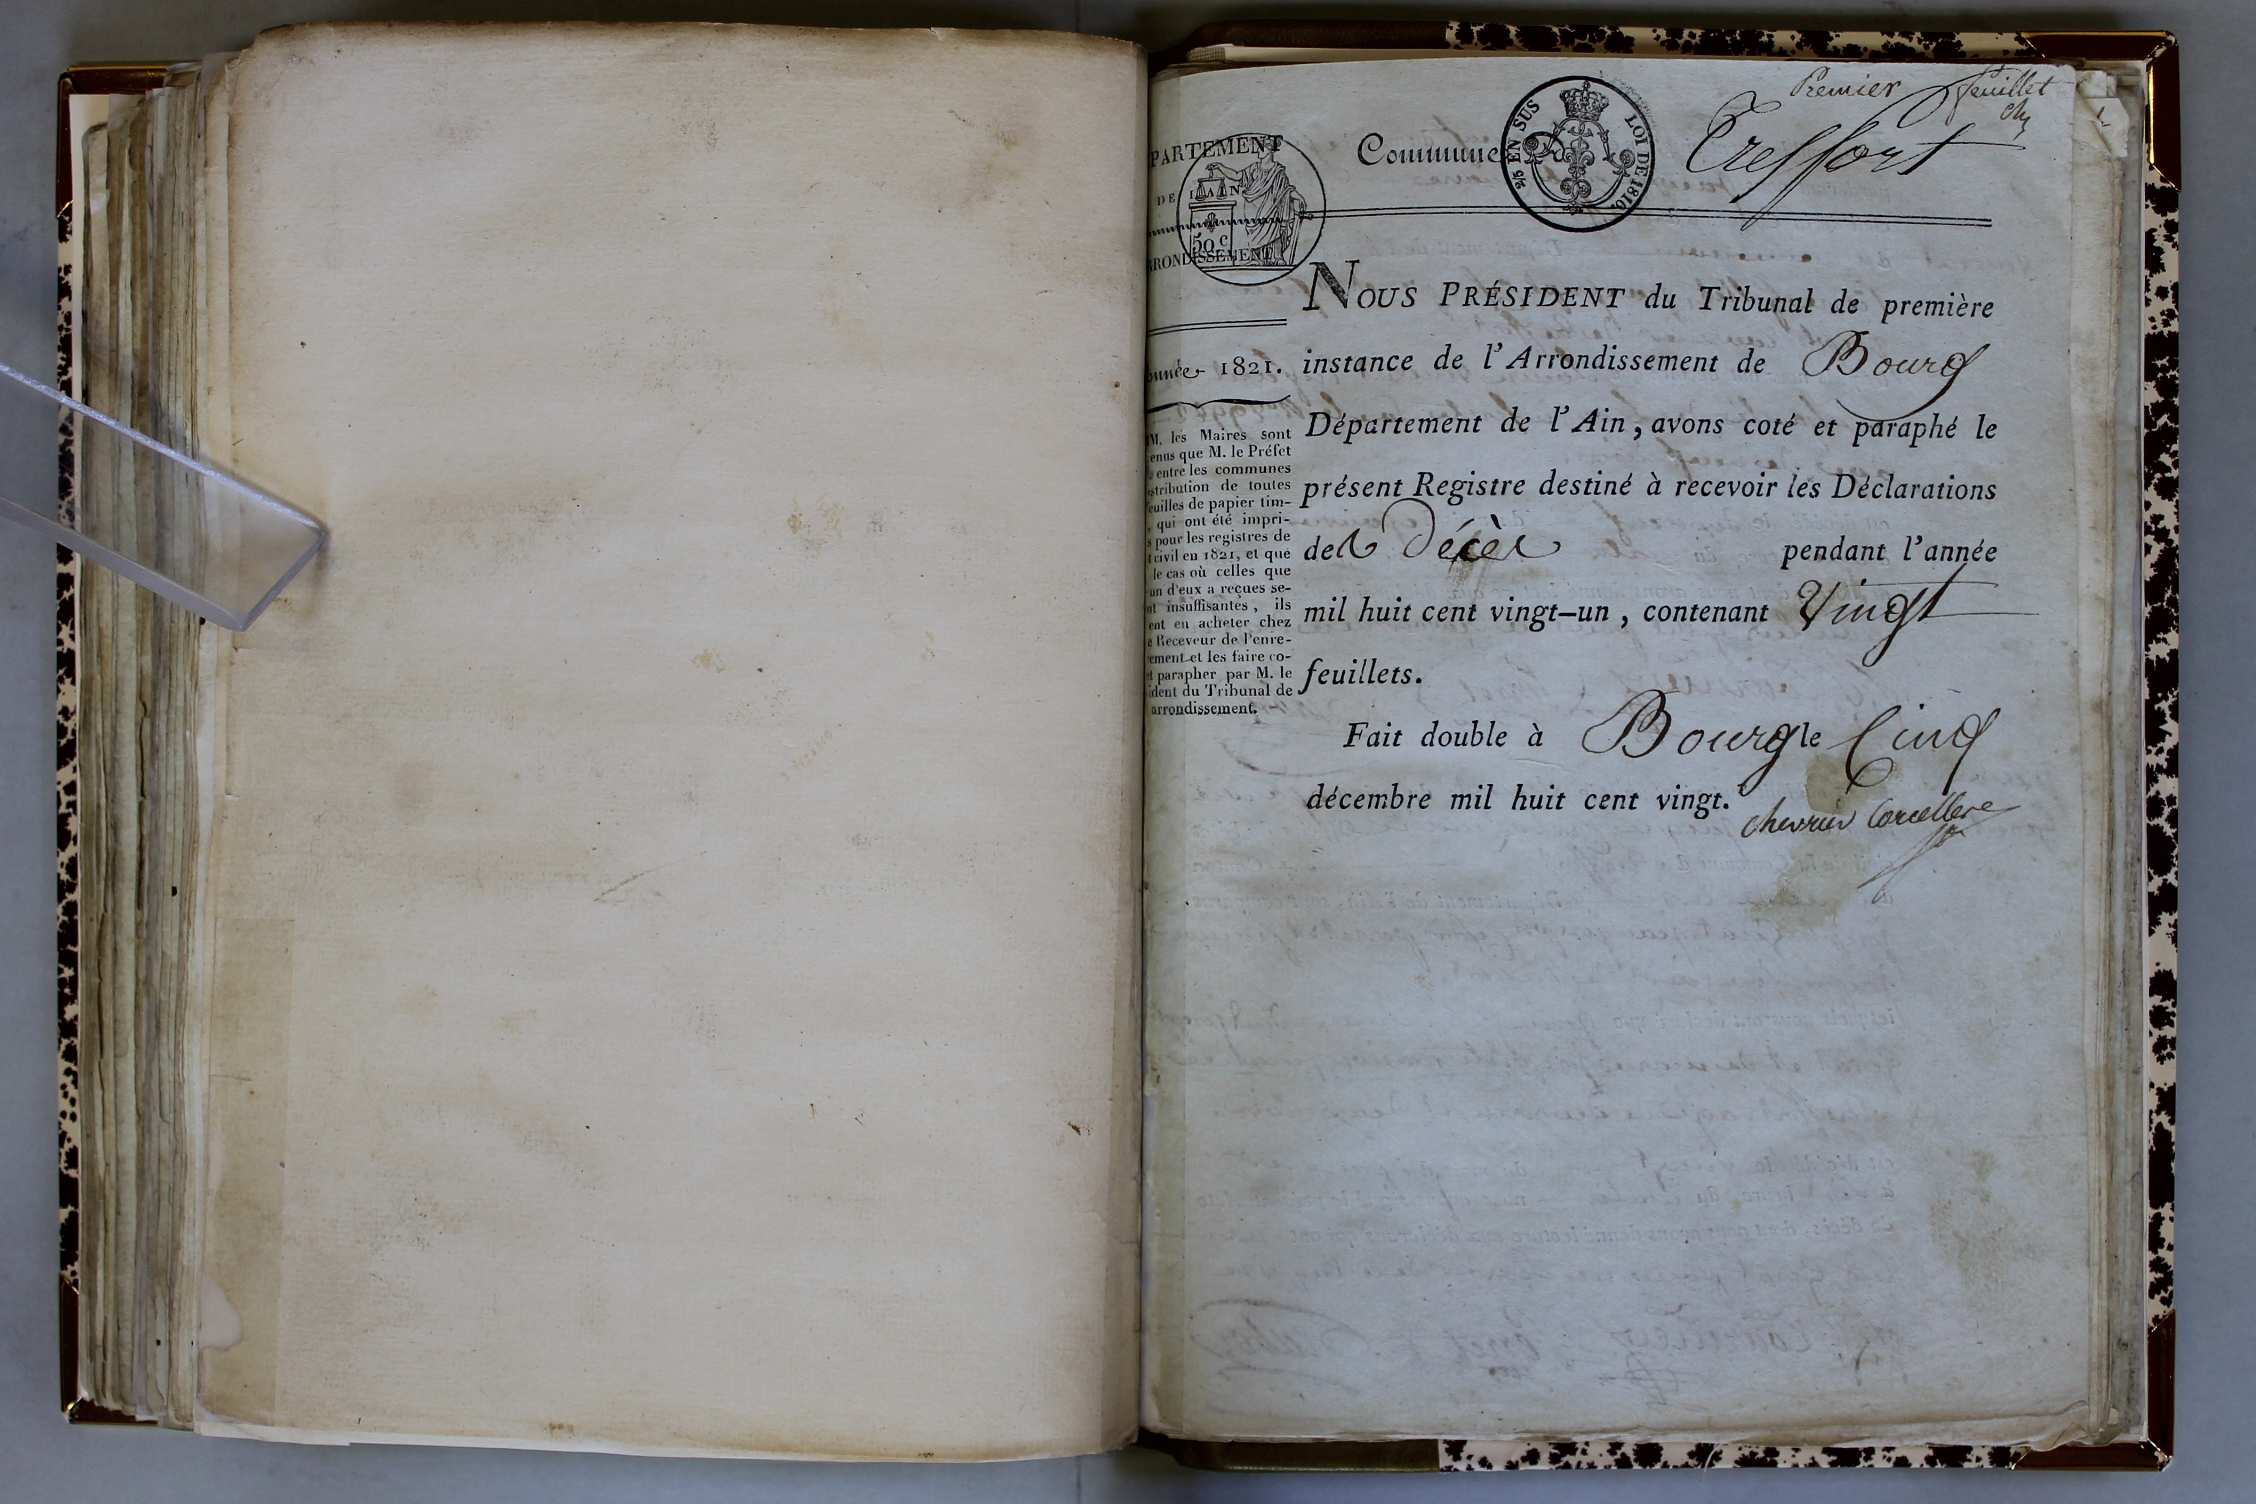 Premier feuillet
Commune Treffort
2/5 EN SUS LOI DE 1810.
PARTEMENT
DE L'AIN
50 c
RRONDISSEMENT
nnée 1821.
M. les Maires sont
enus que M. le Préfet
entre les communes
stribution de toutes
euilles de papier tim-
, qui ont été impri-
s pour les registres de
t civil en 1821, et que
le cas où celles que
un d'eux a reçues se-
nt insuffisantes, ils
ent en acheter chez
e Receveur de l'enre-
ement et les faire co-
t parapher par M. le
ident du Tribunal de
arrondissement.
NOUS PRÉSIDENT du Tribunal de première
instance de l'Arrondissement de Bourg
Département de l'Ain, avons coté et paraphé le
présent Registre destiné à recevoir les Déclarations
des Décès pendant l'année
mil huit cent vingt-un, contenant Vingt
feuillets.
Fait double à Bourg le Cinq
décembre mil huit cent vingt.
Chevrier Corcelles